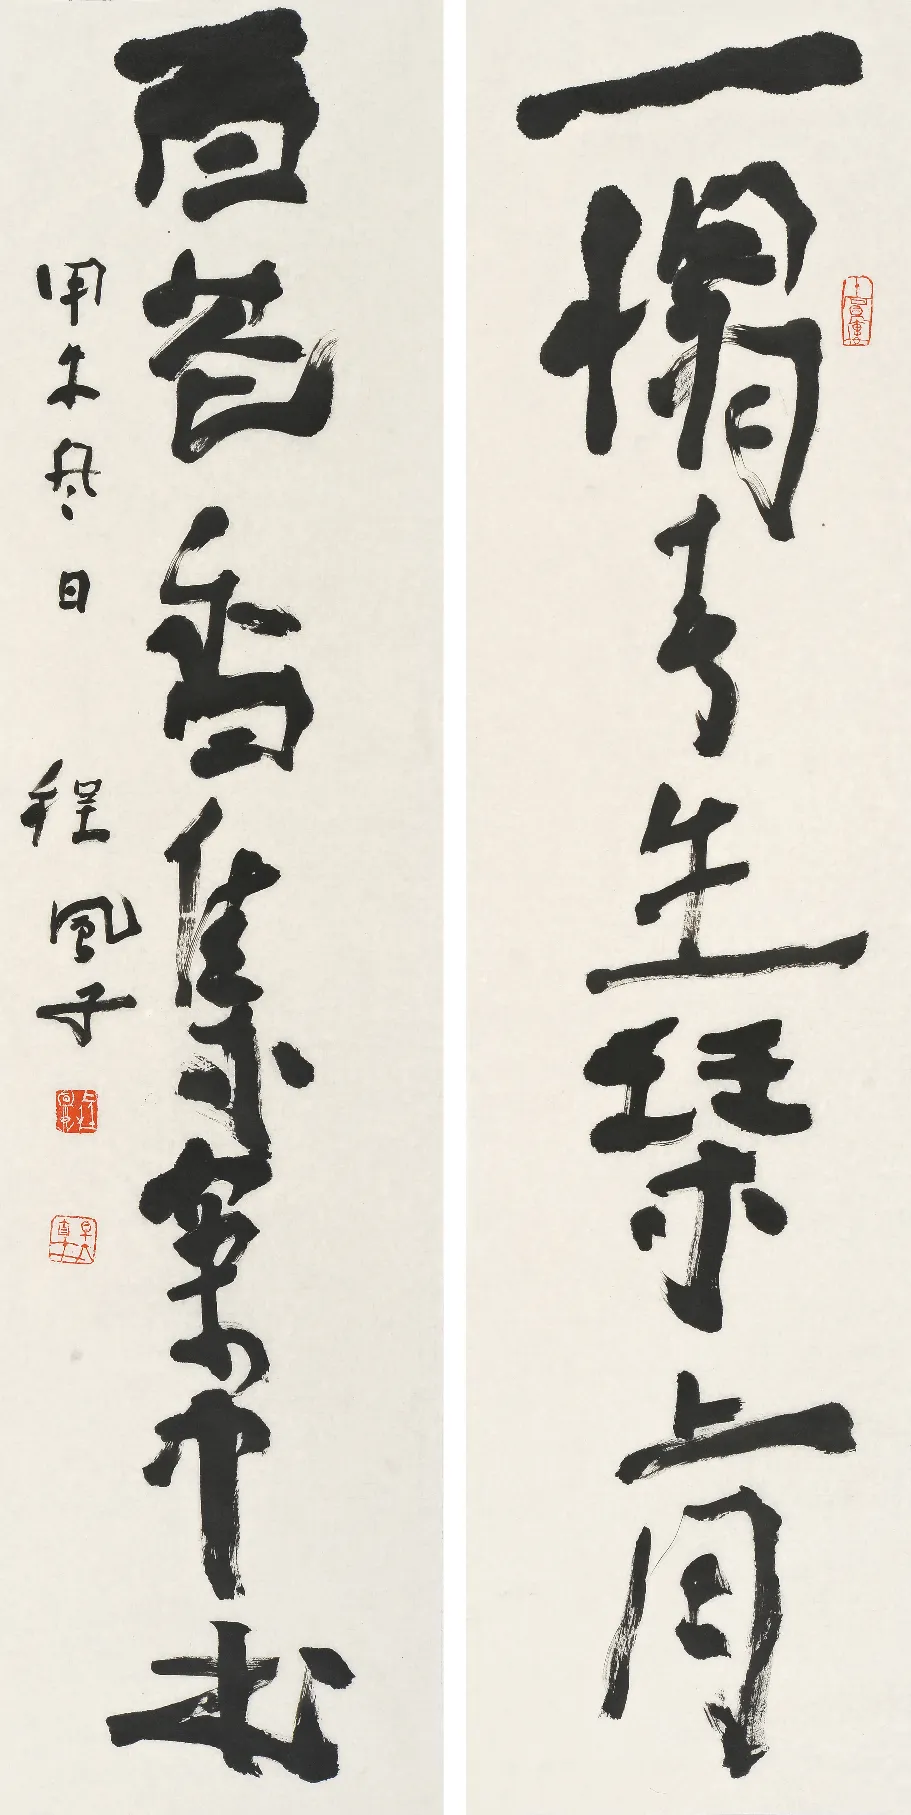 一榻青生琴上月
百花香集案中书
甲午冬日 程風子